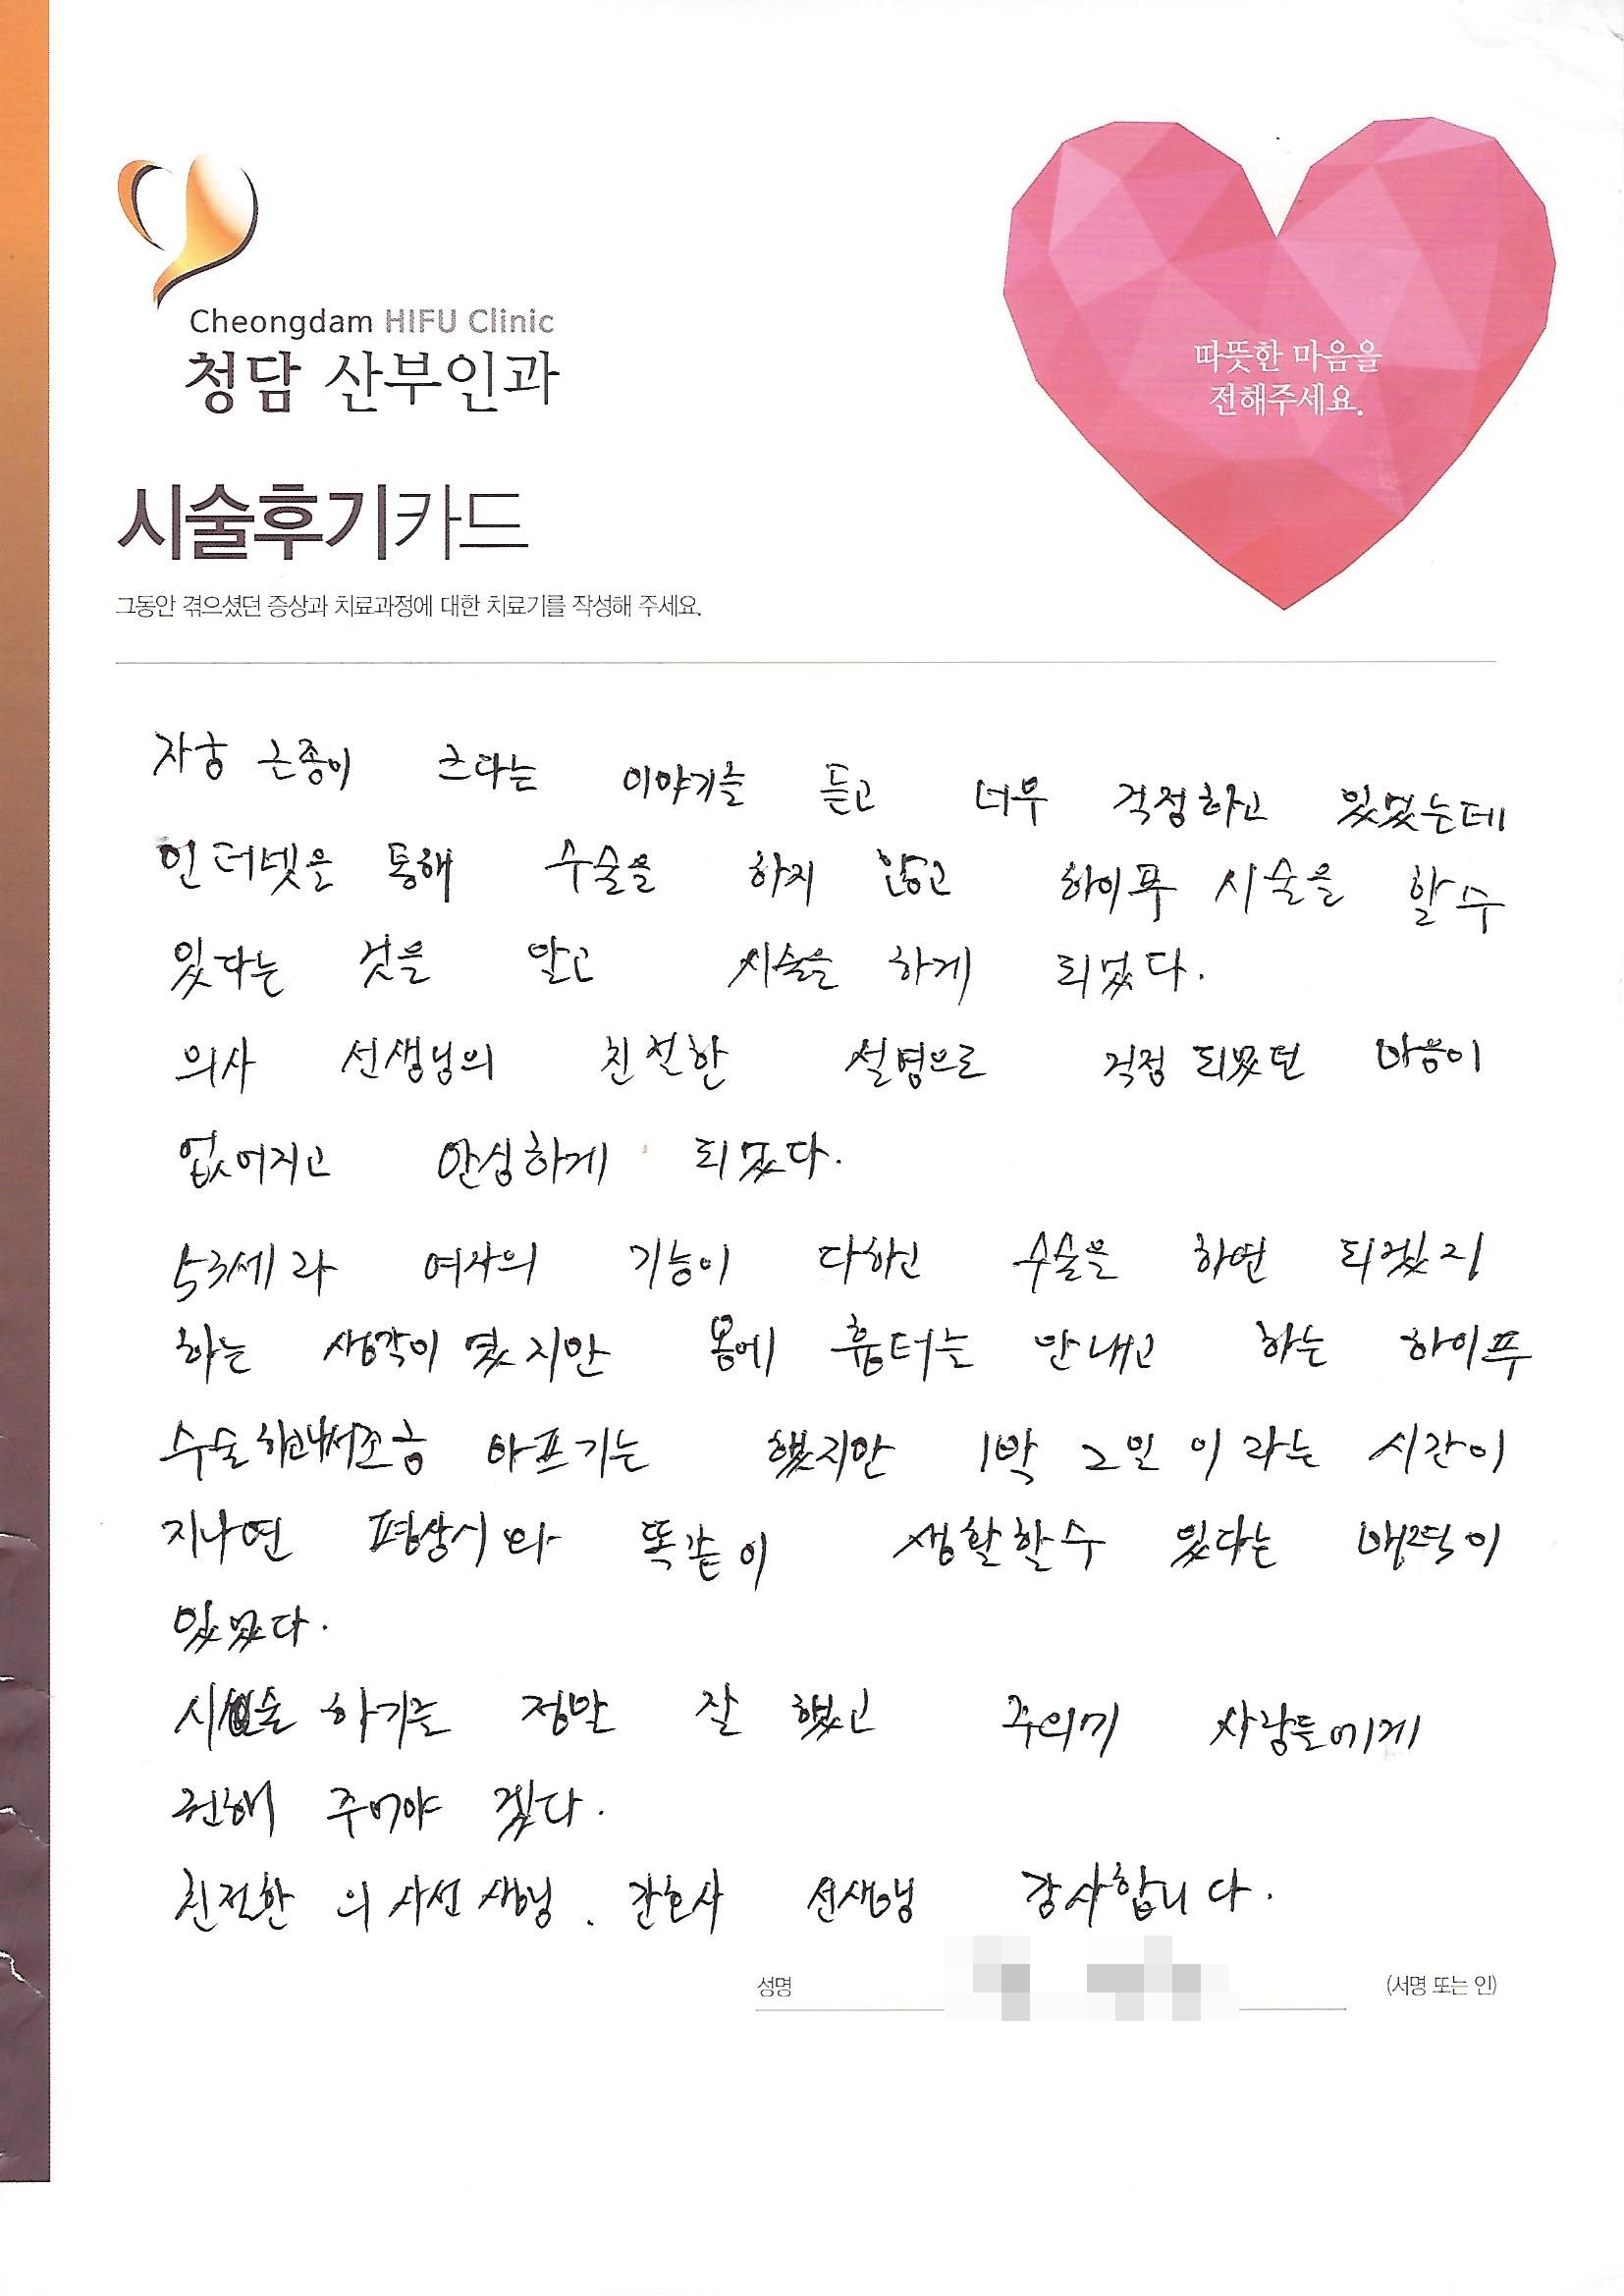 Cheongdam HIFU Clinic
청담 산부인과
따뜻한 마음을
전해주세요.
시술후기카드
그동안 겪으셨던 증상과 치료과정에 대한 치료기를 작성해 주세요.
자궁 근종이 크다는 이야기를 듣고 너무 걱정하고 있었는데
인터넷을 통해 수술을 하지 않고 하이푸 시술을 할수
있다는 것을 알고 시술을 하게 되었다.
의사 선생님의 친절한 설명으로 걱정 되었던 마음이
없어지고 안심하게 되었다.
53세라 여자의 기능이 다하신 수술을 하면 되겠지
하는 생각이 였지만 몸에 흉터는 안내고 하는 하이푸
수술 하고나서조금 아프기는 했지만 1박 2일 이라는 시간이
지나면 평상시와 똑같이 생활할수 있다는 매력이
있었다.
시술 하기는 정말 잘 했고 주의 사람들에게
권해 주어야 겠다.
친절한 의사선생님. 간호사 선생님 감사합니다.
성명 (서명 또는 인)